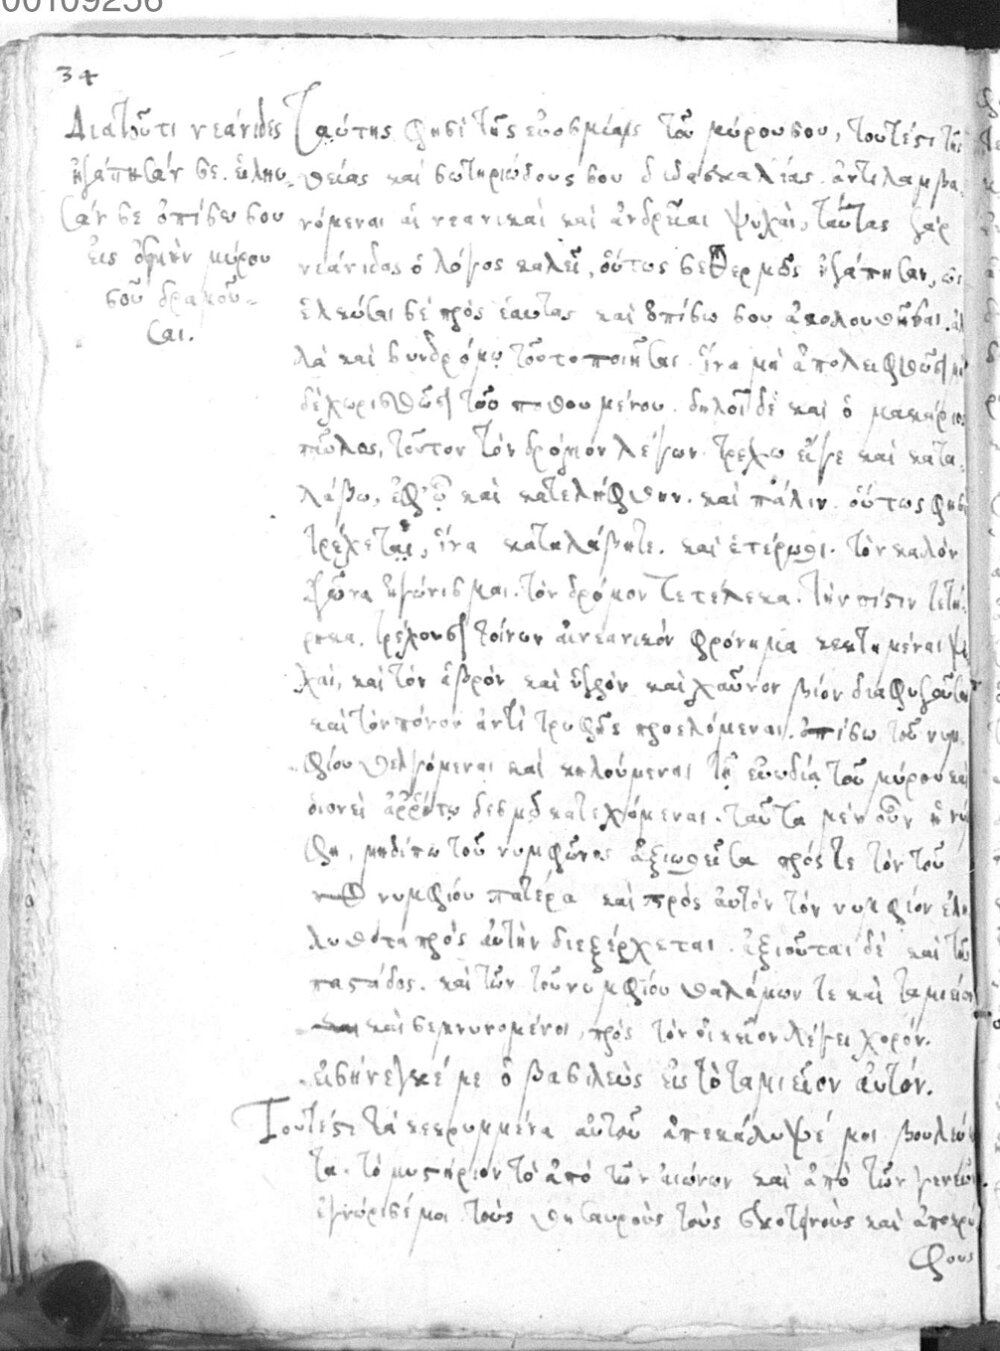 00109256
34
Διατοῦτι νεάνιδες
ἠγάπησάν σε. εἵλκυ-
σάν σε ὀπίσω σου
εἰς ὀσμὴν μύρου
σοῦ δραμοῦ-
σαι.
Ταύτης φησὶ τῆς εὐοσμίας τοῦ μύρου σου, τουτέστι τῆς
θείας καὶ σωτηριώδους σου διδασκαλίας. ἀντιλαμβα-
νόμεναι αἱ νεανικαὶ καὶ ἀνδρεῖαι ψυχαὶ, ταύτας γὰρ
νεάνιδας ὁ λόγος καλεῖ, οὕτως σε θερμῶς ἠγάπησαν, ὡς
ἑλκύσαι σέ πρὸς ἑαυτας καὶ ὀπίσω σου ἀκολουθῆσαι. ἀλ
λὰ καὶ συνδρόμῳ τοῦτο ποιῆσαι. ἵνα μὴ ἀπολειφθῶσι μη
δὲ χωρισθῶσι τοῦ ποθουμένου. δηλοῖ δὲ καὶ ὁ μακάριος
παῦλος, τοῦτον τὸν δρόμον λέγων. τρέχω εἴγε καὶ κατα-
λάβω, ἐφ' ᾧ καὶ κατελήφθην. καὶ πάλιν. οὕτως φησὶ
τρέχετε, ἵνα καταλάβητε. καὶ ἑτέρωθι. τὸν καλὸν
ἀγῶνα ἠγώνισμαι. τὸν δρόμον τετέλεκα. τὴν πίστιν τετή-
ρηκα. τρέχουσι τοίνυν αἱ νεανικὸν φρόνημα κεκτημέναι ψυ
χαὶ, καὶ τὸν ἁβρὸν καὶ ὑγρὸν καὶ χαῦνον βίον διαφυγοῦσαι
καὶ τὸν πόνον ἀντὶ τρυφῆς προελόμεναι. ὀπίσω τοῦ νυμ-
φίου θελγόμεναι καὶ κηλούμεναι τῇ εὐωδίᾳ τοῦ μύρου καὶ
οἱονεὶ ἀρρήτῳ δεσμῷ κατεχόμεναι. ταῦτα μὲν οὖν ἡ νύμ
φη, μηδέπω τοῦ νυμφῶνος ἀξιωθεῖσα πρός τε τὸν τοῦ
νυμφίου πατέρα καὶ πρὸς αὐτὸν τὸν νυμφίον ἐλη
λυθότα πρὸς αὐτὴν διεξέρχεται. ἀξιοῦται δὲ καὶ τοῦ
παστάδος. καὶ τῶν τοῦ νυμφίου θαλάμων τε καὶ ταμιείων
καὶ σεμνυνομένοι, πρὸς τὸν οἰκεῖον λέγει χορόν.
εἰσήνεγκέ με ὁ βασιλεὺς εἰς τὸ ταμιεῖον αὐτόν.
Τουτέστι τὰ κεκρυμμένα αὐτοῦ ἀπεκάλυψέ μοι βουλεύμα
τα. τὸ μυστήριον τὸ ἀπὸ τῶν αἰώνων καὶ ἀπὸ τῶν γενεῶν.
ἐγνώρισέ μοι τοὺς θησαυροὺς τοὺς σκοτεινοὺς καὶ ἀποκρύ
φους